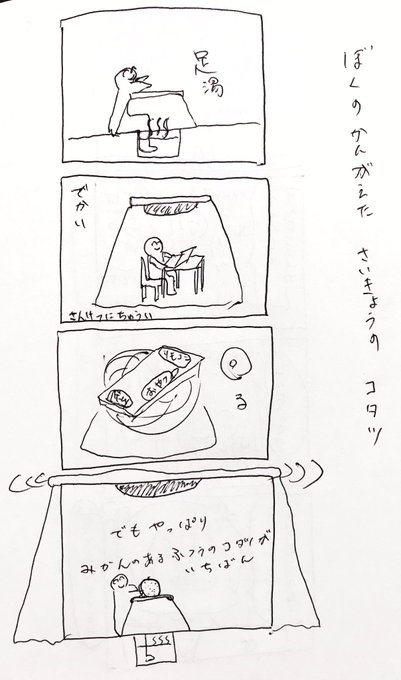 ぼくのかんがえた さいきょうの コタツ
足湯
でかい
さんけつにちゅうい
リモコン
おやつ
まわる
でもやっぱり
みかんのあるふつうのコタツが
いちばん